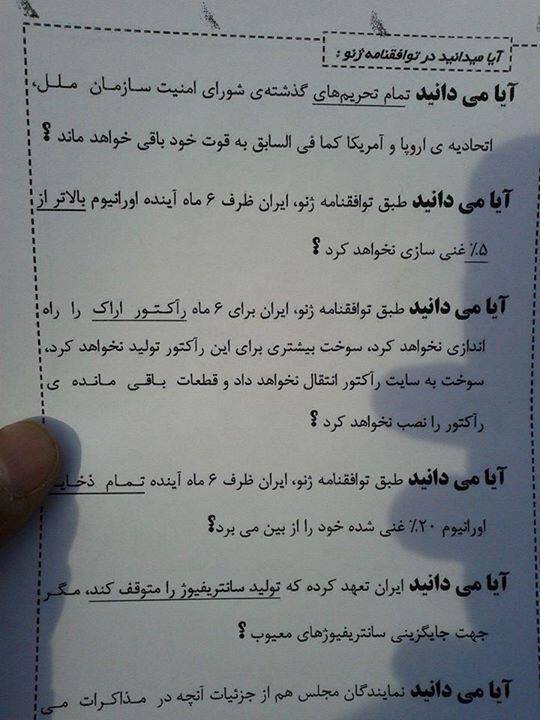 آیا میدانید در توافقنامه ژنو :
آیا می دانید تمام تحریم‌های گذشته‌ی شورای امنیت سازمان ملل،
اتحادیه ی اروپا و آمریکا کما فی السابق به قوت خود باقی خواهد ماند ؟
آیا می دانید طبق توافقنامه ژنو، ایران ظرف ۶ ماه آینده اورانیوم بالاتر از
۵٪ غنی سازی نخواهد کرد ؟
آیا می دانید طبق توافقنامه ژنو، ایران برای ۶ ماه رآکتور اراک را راه
اندازی نخواهد کرد، سوخت بیشتری برای این رآکتور تولید نخواهد کرد،
سوخت به سایت رآکتور انتقال نخواهد داد و قطعات باقی مانده ی
رآکتور را نصب نخواهد کرد ؟
آیا می دانید طبق توافقنامه ژنو، ایران ظرف ۶ ماه آینده تمام
اورانیوم ۲۰٪ غنی شده خود را از بین می برد؟
آیا می دانید ایران تعهد کرده که تولید سانتریفیوژ را متوقف کند، مگر
جهت جایگزینی سانتریفیوژهای معیوب ؟
آیا می دانید نمایندگان مجلس هم از جزئیات آنچه در مذاکرات می